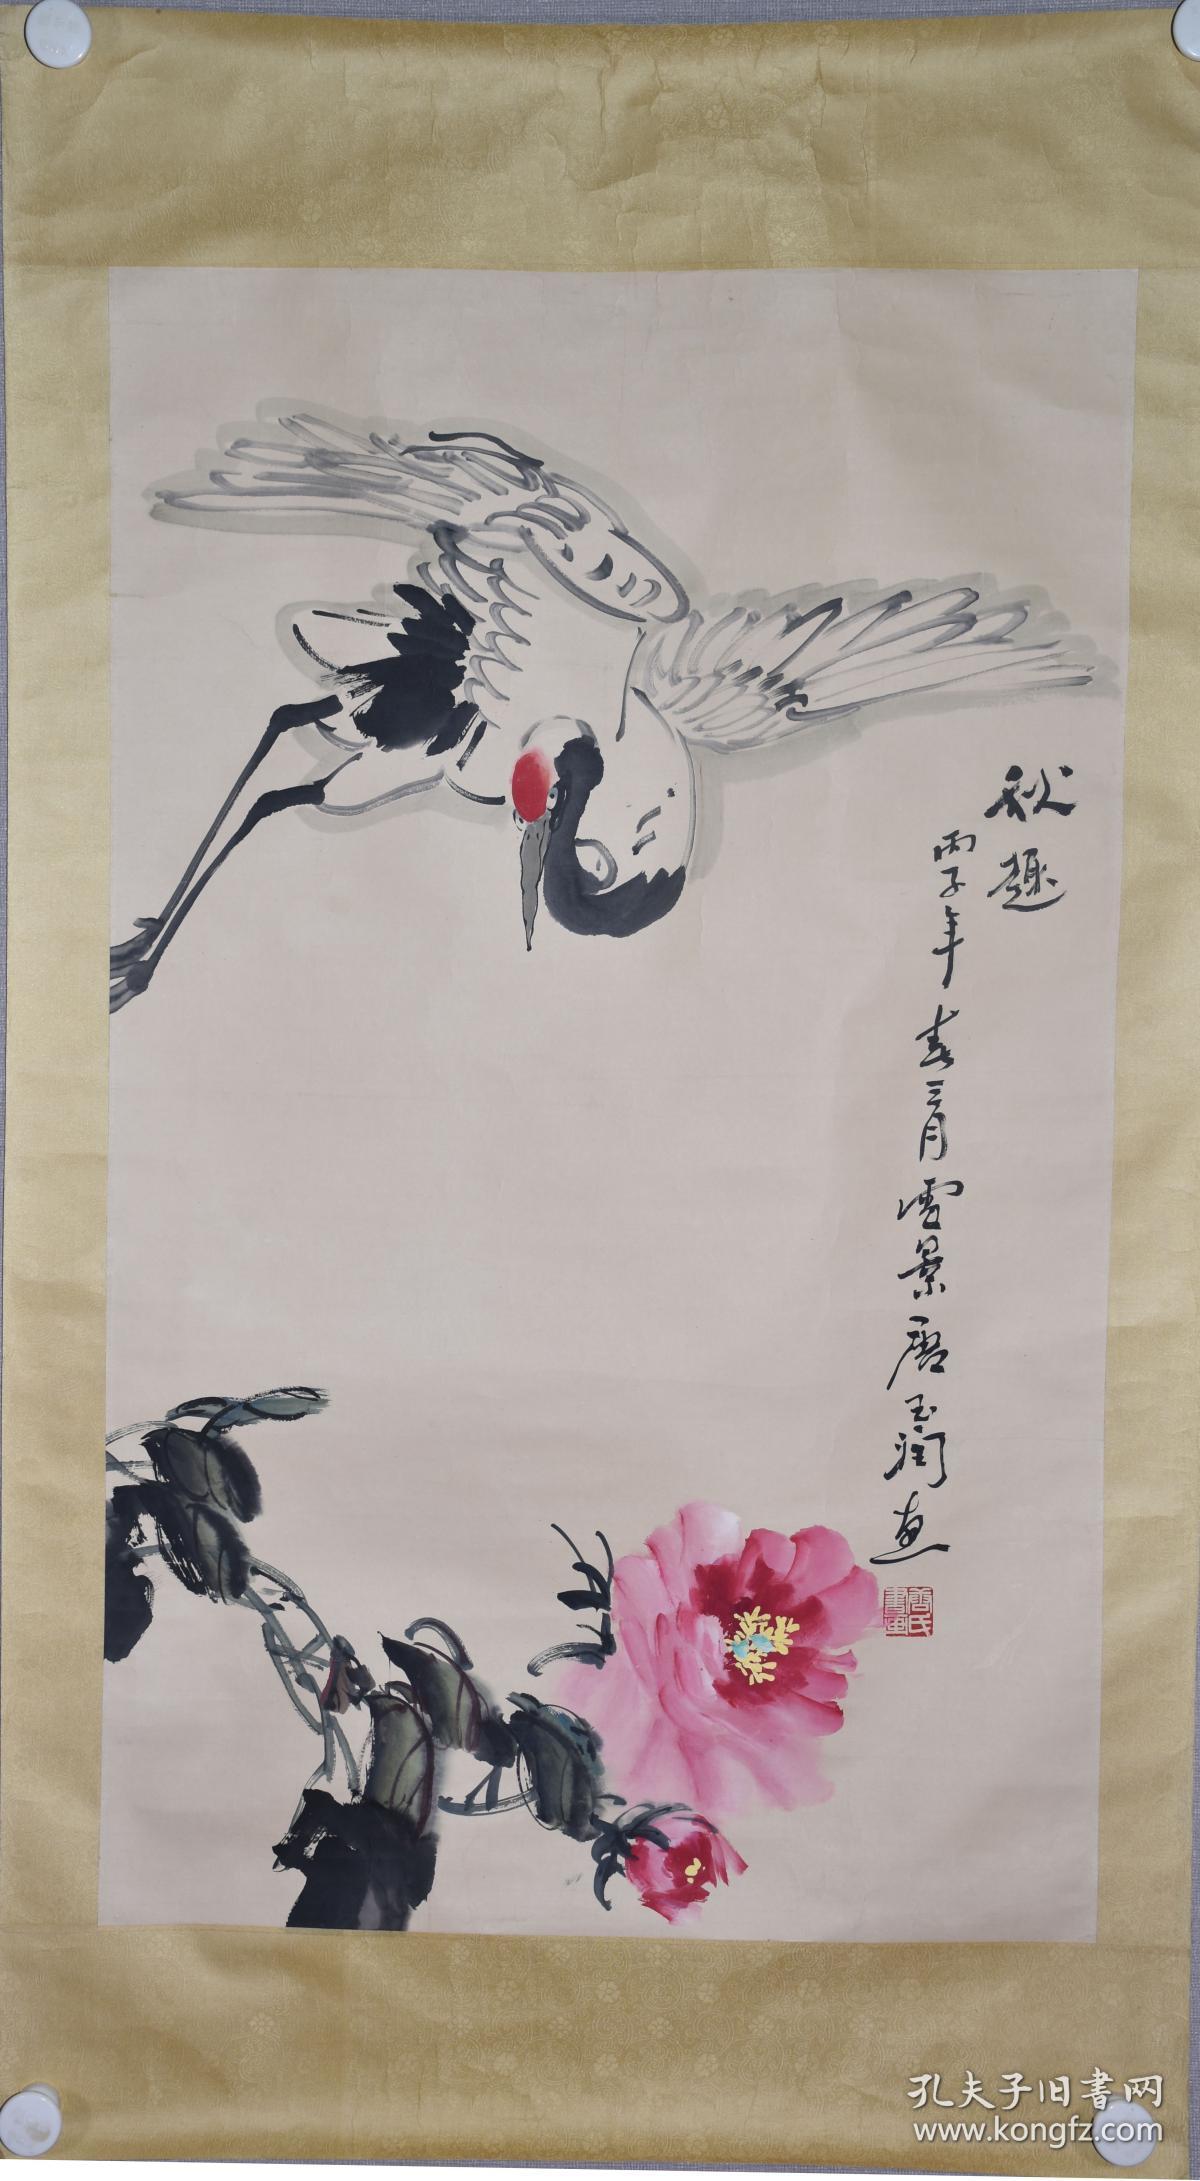 秋趣
丙子年春三月雪景唐玉润画
唐氏書画
孔夫子旧書网
www.kongfz.com